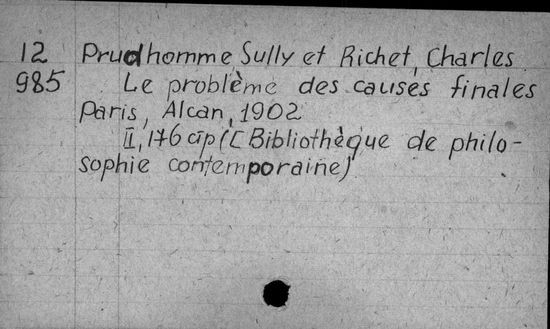 12 Prudhomme, Sully et Richet, Charles
985 Le problème des causes finales
Paris, Alcan, 1902
II, 176 cтр (Bibliothèque de philo-
sophie contemporaine)